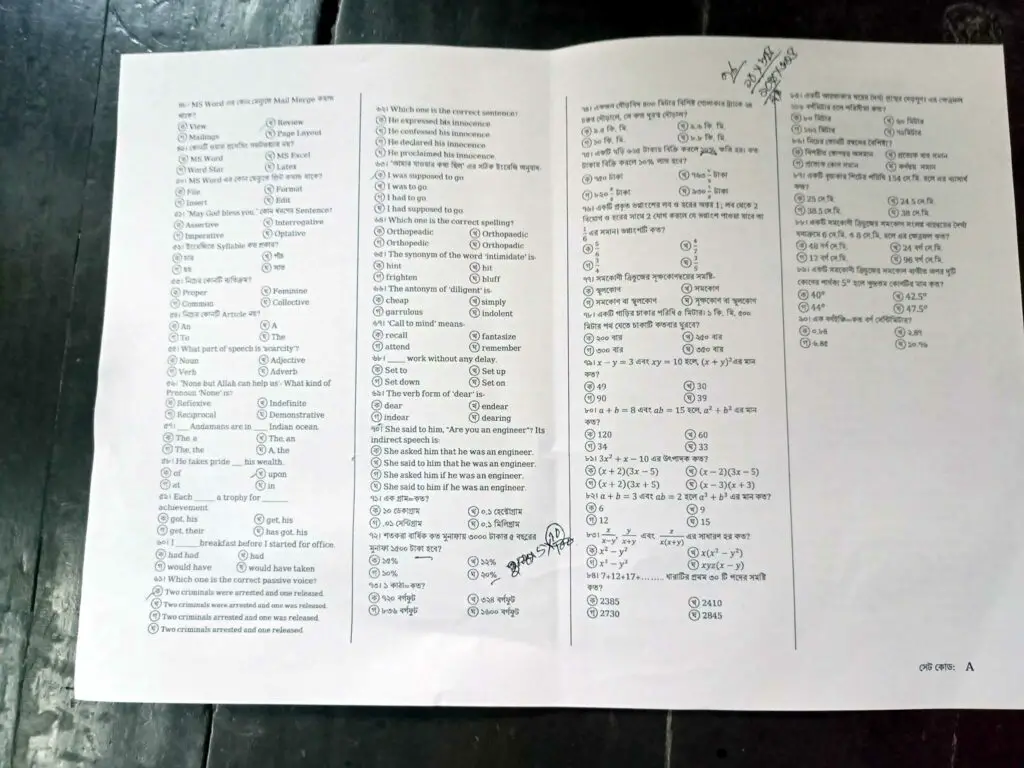 ৪৯। MS Word এর কোন মেনুতে Mail Merge কমান্ড
থাকে?
ক View খ Review
গ Mailings ঘ Page Layout
ক MS Word খ MS Excel
গ Word Star ঘ Latex
৫১। MS Word এর কোন মেনুতে প্রিন্ট কমান্ড থাকে?
ক File খ Format
গ Insert ঘ Edit
৫২। 'May God bless you.' কোন ধরণের Sentence?
ক Assertive খ Interrogative
গ Imperative ঘ Optative
৫৩। ইংরেজিতে Syllable কত প্রকার?
ক চার খ পাঁচ
গ ছয় ঘ সাত
৫৪। নিচের কোনটি ব্যতিক্রম?
ক Proper খ Feminine
গ Common ঘ Collective
৫৫। নিচের কোনটি Article নয়?
ক An খ A
গ To ঘ The
What part of speech is 'scarcity'?
ক Noun খ Adjective
গ Verb ঘ Adverb
৫৬। 'None but Allah can help us'- What kind of
Pronoun 'None' is?
ক Reflexive খ Indefinite
গ Reciprocal ঘ Demonstrative
৫৭। ___ Andamans are in ___ Indian ocean.
ক The, a খ The, an
গ The, the ঘ A, the
৫৮। He takes pride ___ his wealth.
ক of খ upon
গ at ঘ in
৫৯। Each ____ a trophy for _____
achievement.
ক got, his খ get, his
গ get, their ঘ has got, his
৬০। I _____ breakfast before I started for office.
ক had had খ had
গ would have ঘ would have taken
৬১। Which one is the correct passive voice?
ক Two criminals were arrested and one released.
খ Two criminals were arrested and one was released.
গ Two criminals arrested and one was released.
ঘ Two criminals arrested and one released.
৬২। Which one is the correct sentence?
ক He expressed his innocence.
খ He confessed his innocence.
গ He declared his innocence.
ঘ He proclaimed his innocence.
৬৩। 'আমার যাওয়ার কথা ছিল' এর সঠিক ইংরেজি অনুবাদ-
ক I was supposed to go
খ I was to go
গ I had to go
ঘ I had supposed to go
৬৪। Which one is the correct spelling?
ক Orthopeadic খ Orthopaedic
গ Orthopedic ঘ Orthopadic
৬৫। The synonym of the word 'intimidate' is-
ক hint খ hit
গ frighten ঘ bluff
৬৬। The antonym of 'diligent' is-
ক cheap খ simply
গ garrulous ঘ indolent
৬৭। 'Call to mind' means-
ক recall খ fantasize
গ attond ঘ remember
৬৮। ____ work without any delay.
ক Set to খ Set up
গ Set down ঘ Set on
৬৯। The verb form of 'dear' is-
ক dear খ endear
গ indear ঘ dearing
৭০। She said to him, "Are you an engineer"? Its
indirect speech is:
ক She asked him that he was an engineer.
খ She said to him that he was an engineer.
গ She asked him if he was an engineer.
ঘ She said to him if he was an engineer.
৭১। এক গ্রাম=কত?
ক ১০ ডেকাগ্রাম খ ০.১ হেক্টোগ্রাম
গ .০১ সেন্টিগ্রাম ঘ ০.১ মিলিগ্রাম
৭২। শতকরা বার্ষিক কত মুনাফায় ৩০০০ টাকার ৫ বছরের
মুনাফা ১৫০০ টাকা হবে?
ক ১৫% খ ১২%
গ ১০% ঘ ২০%
৭৩। ১ কাঠা=কত?
ক ৭২০ বর্গফুট খ ৩২৪ বর্গফুট
গ ৮৩৬ বর্গফুট ঘ ১৬০০ বর্গফুট
৭৪। একজন দৌড়বিদ ৪০০ মিটার বিশিষ্ট গোলাকার ট্র্যাকে ২৪
চক্কর দৌড়ালে, সে কত দূরত্ব দৌড়ালো?
ক ৯.৪ কি. মি. খ ৯.৬ কি. মি.
গ ১০ কি. মি. ঘ ৮.৮ কি. মি.
৭৫। একটি ঘড়ি ৬২৫ টাকায় বিক্রি করলে ১০% ক্ষতি হয়। কত
টাকায় বিক্রি করলে ১০% লাভ হবে?
৭৬। একটি প্রকৃত ভগ্নাংশের লব ও হরের অন্তর 1; লব থেকে 2
বিয়োগ ও হরের সাথে 2 যোগ করলে যে ভগ্নাংশ পাওয়া যাবে তা
1/6 এর সমান। ভগ্নাংশটি কত?
ক 5/6 খ 4/7
গ 3/4 ঘ 2/3
৭৭। সমকোণী ত্রিভুজের সূক্ষকোণদ্বয়ের সমষ্টি-
ক স্থূলকোণ খ সমকোণ
গ সমকোণ বা স্থূলকোণ ঘ সূক্ষকোণ বা স্থূলকোণ
৭৮। একটি গাড়ির চাকার পরিধি ৫ মিটার। ১ কি. মি. ৫০০
মিটার পথ যেতে চাকাটি কতবার ঘুরবে?
ক ২০০ বার খ ২৫০ বার
গ ৩০০ বার ঘ ৩৫০ বার
৭৯। x − y = 3 এবং xy = 10 হলে, (x + y)² এর মান
কত?
ক 49 খ 30
গ 90 ঘ 39
৮০। a + b = 8 এবং ab = 15 হলে, a² + b² এর মান
কত?
ক 120 খ 60
গ 34 ঘ 33
৮১। 3x² + x − 10 এর উৎপাদক কত?
ক (x + 2)(3x − 5) খ (x − 2)(3x − 5)
গ (x + 2)(3x + 5) ঘ (x − 3)(x + 3)
৮২। a + b = 3 এবং ab = 2 হলে a³ + b³ এর মান কত?
ক 6 খ 9
গ 12 ঘ 15
৮৩। x/(x−y), y/(x+y) এবং z/x(x+y) এর সাধারণ হর কত?
ক x² − y² খ x(x² − y²)
গ x³ − y³ ঘ xyz(x − y)
৮৪। 7+12+17+........ ধারাটির প্রথম ৩০ টি পদের সমষ্টি
কত?
ক 2385 খ 2410
গ 2730 ঘ 2845
ক ৮০ মিটার খ ৬০ মিটার
৮৭। একটি বৃত্তাকার পিতের পরিধি 154 সে.মি. হলে এর ব্যাসার্ধ
কত?
ক 25 সে.মি. খ 24.5 সে.মি.
গ 38.5 সে.মি. ঘ 38 সে.মি.
৮৮। একটি সমকোণী ত্রিভুজের সমকোণ সংলগ্ন বাহুদ্বয়ের দৈর্ঘ্য
যথাক্রমে 6 সে.মি. ও 8 সে.মি. হলে এর ক্ষেত্রফল কত?
ক 48 বর্গ সে.মি. খ 24 বর্গ সে.মি.
গ 12 বর্গ সে.মি. ঘ 96 বর্গ সে.মি.
৮৯। একটি সমকোণী ত্রিভুজের সমকোণ ব্যতীত অপর দুটি
কোণের পার্থক্য 5° হলে ক্ষুদ্রতম কোণটির মান কত?
ক 40° খ 42.5°
গ 44° ঘ 47.5°
৯০। এক বর্গইঞ্চি=কত বর্গ সেন্টিমিটার?
ক ০.৮৪ খ ২.৪৭
গ ৬.৪৫ ঘ ১০.৭৬
সেট কোড: A